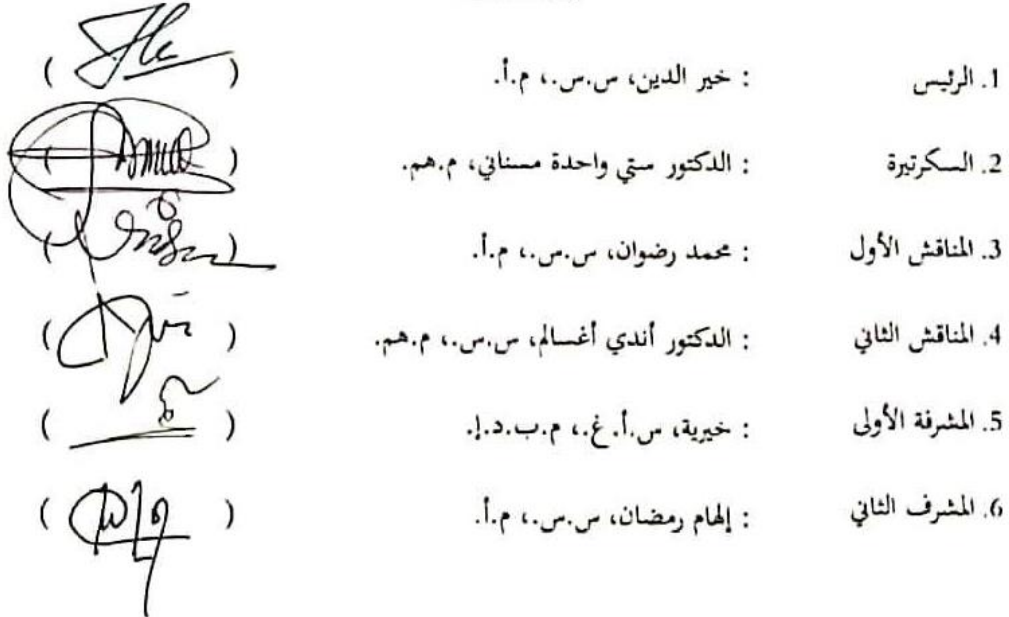 1. الرئيس : خير الدين، س.س.، م.أ. ( )
2. السكرتيرة : الدكتور ستي واحدة مسناني، م.هم. ( )
3. المناقش الأول : محمد رضوان، س.س.، م.أ. ( )
4. المناقش الثاني : الدكتور أندي أغسالم، س.س.، م.هم. ( )
5. المشرفة الأولى : خيرية، س.أ.غ.، م.ب.د.إ. ( )
6. المشرف الثاني : إلهام رمضان، س.س.، م.أ. ( )